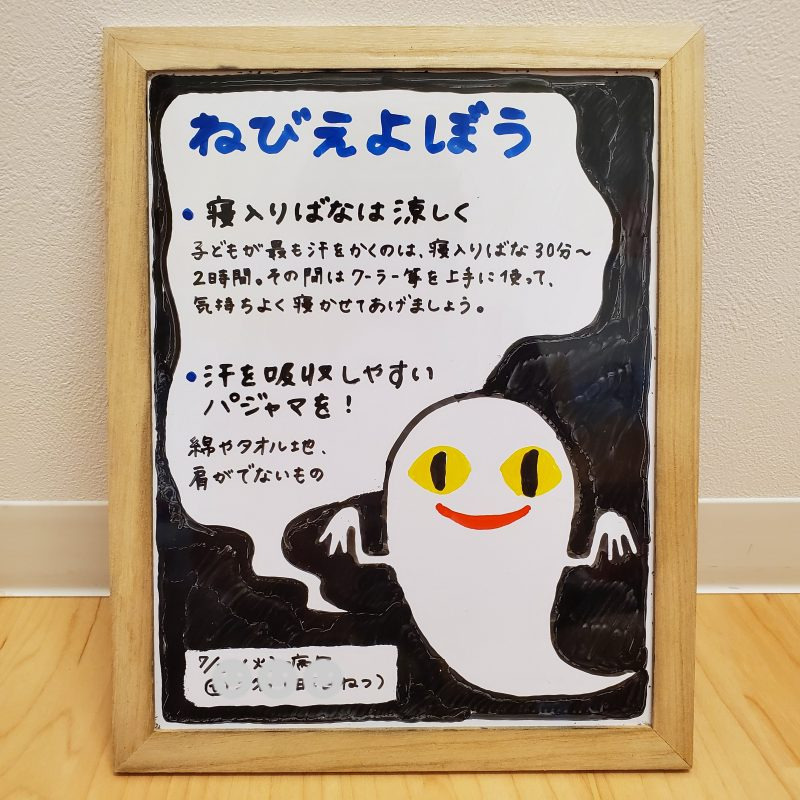 ねびえよぼう
• 寝入りばなは涼しく
子どもが最も汗をかくのは、寝入りばな30分～
2時間。その間はクーラー等を上手に使って、
気持ちよく寝かせてあげましょう。
• 汗を吸収しやすい
パジャマを！
綿やタオル地、
肩がでないもの
7/
ねっ)